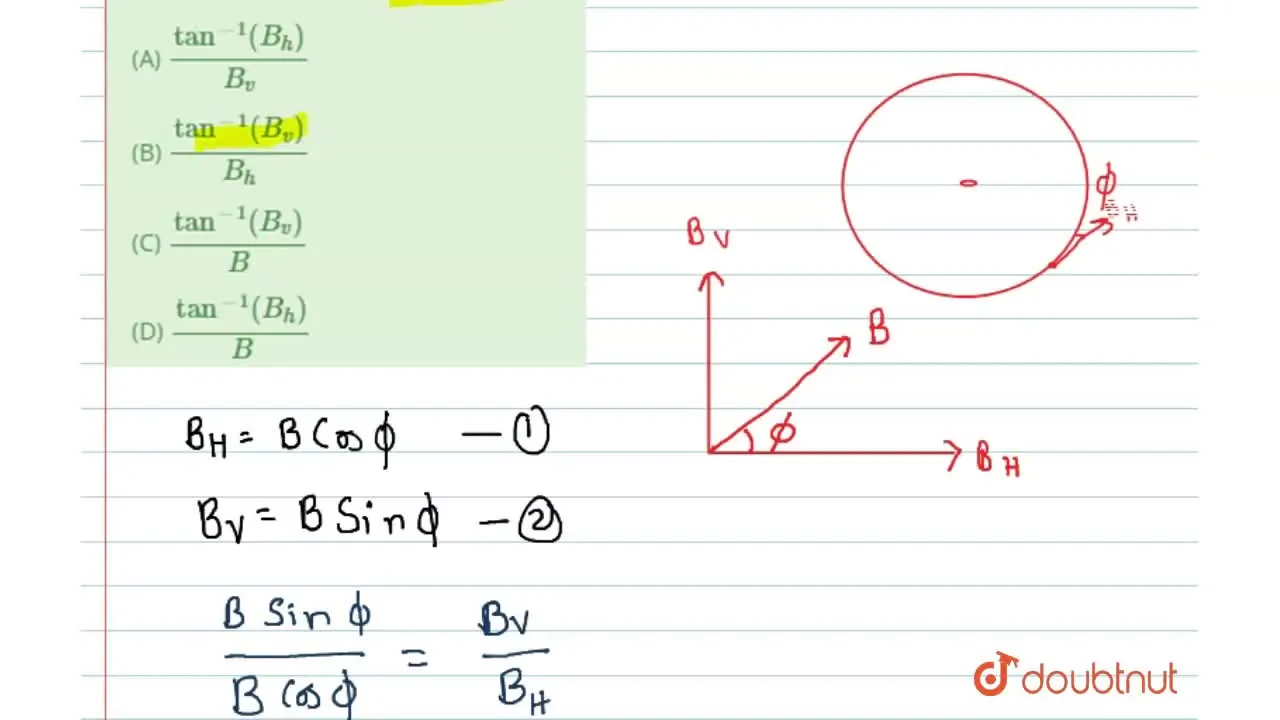 (A) tan⁻¹(B_h) / B_v
(B) tan⁻¹(B_v) / B_h
(C) tan⁻¹(B_v) / B
(D) tan⁻¹(B_h) / B
ϕ
B_V
B
ϕ
B_H
B_H = B Cos ϕ — ①
B_V = B Sin ϕ — ②
B Sin ϕ / B Cos ϕ = B_V / B_H
doubtnut